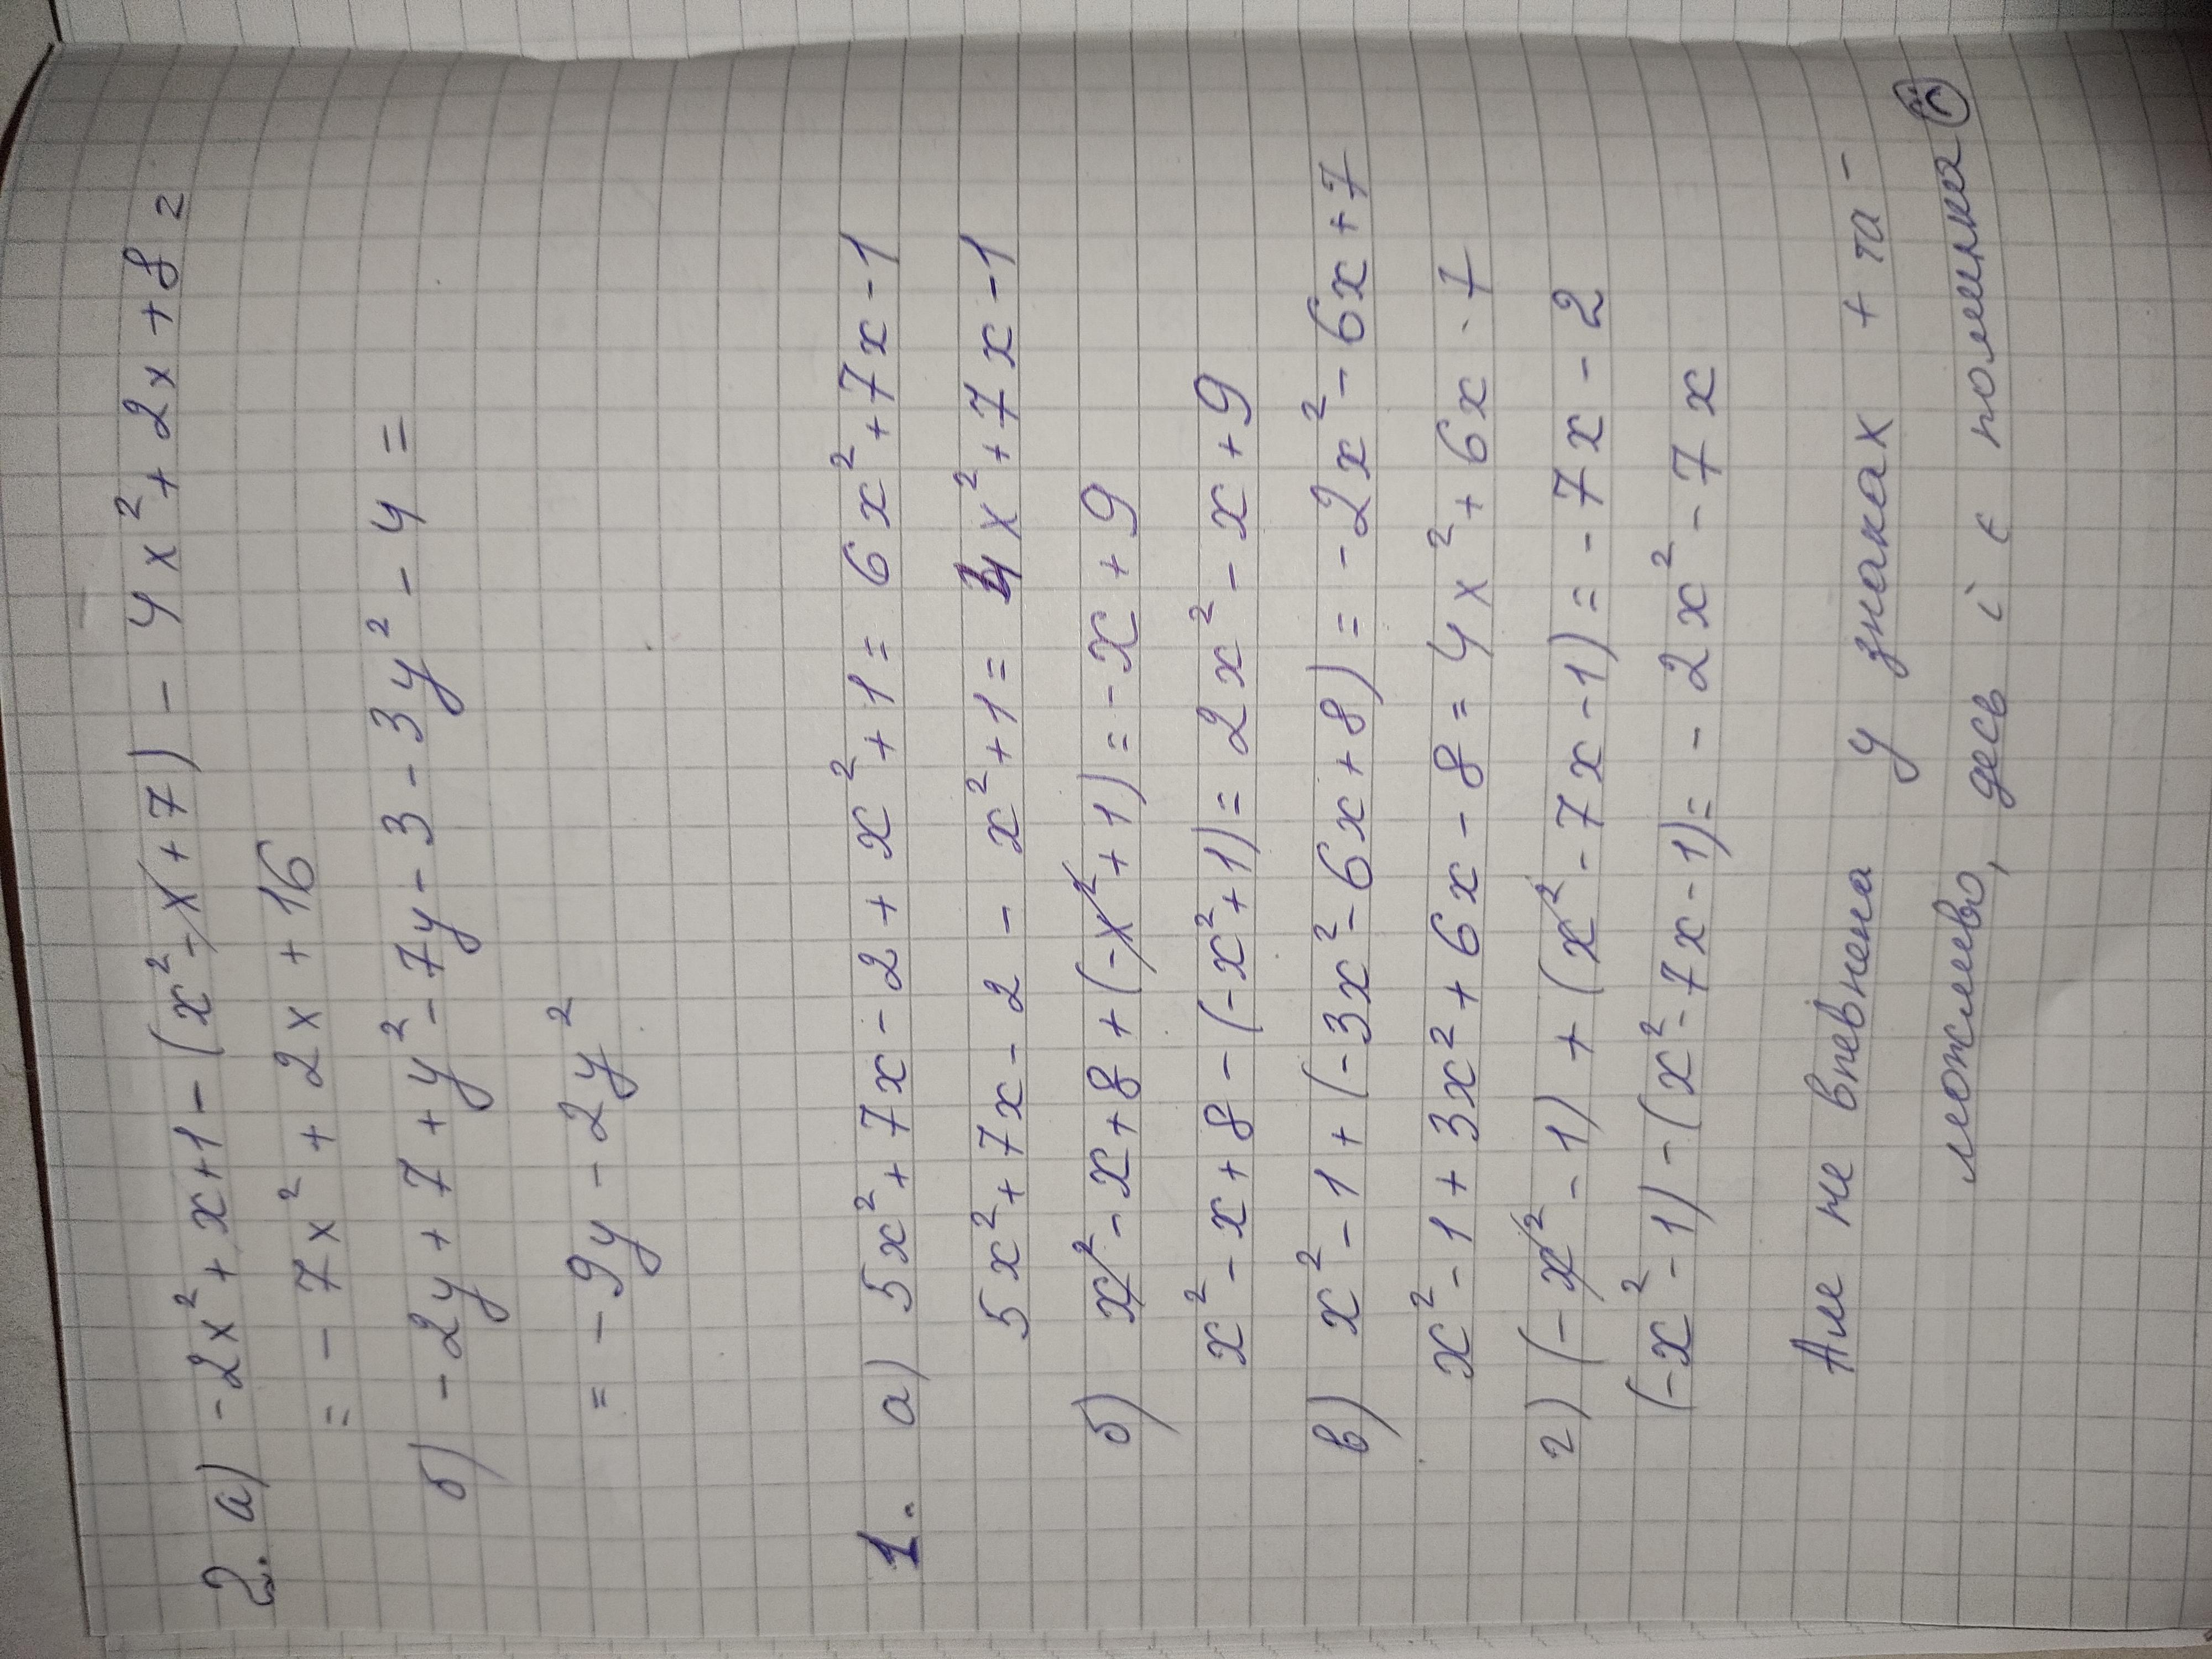 2. а) -2x² + x + 1 - (x² - x + 7) - 4x² + 2x + 8 =
= - 7x² + 2x + 16
б) - 2y + 7 + y² - 7y - 3 - 3y² - 4 =
= - 9y - 2y²
1. а) 5x² + 7x - 2 + x² + 1 = 6x² + 7x - 1
5x² + 7x - 2 - x² + 1 = 4x² + 7x - 1
б) x² - x + 8 + (-x² + 1) = - x + 9
x² - x + 8 - (-x² + 1) = 2x² - x + 9
в) x² - 1 + (-3x² - 6x + 8) = -2x² - 6x + 7
x² - 1 + 3x² + 6x - 8 = 4x² + 6x - 7
г) (-x² - 1) + (x² - 7x - 1) = - 7x - 2
(-x² - 1) - (x² - 7x - 1) = - 2x² - 7x
Але не впевнена у знаках + та -
можливо, десь і є помилка